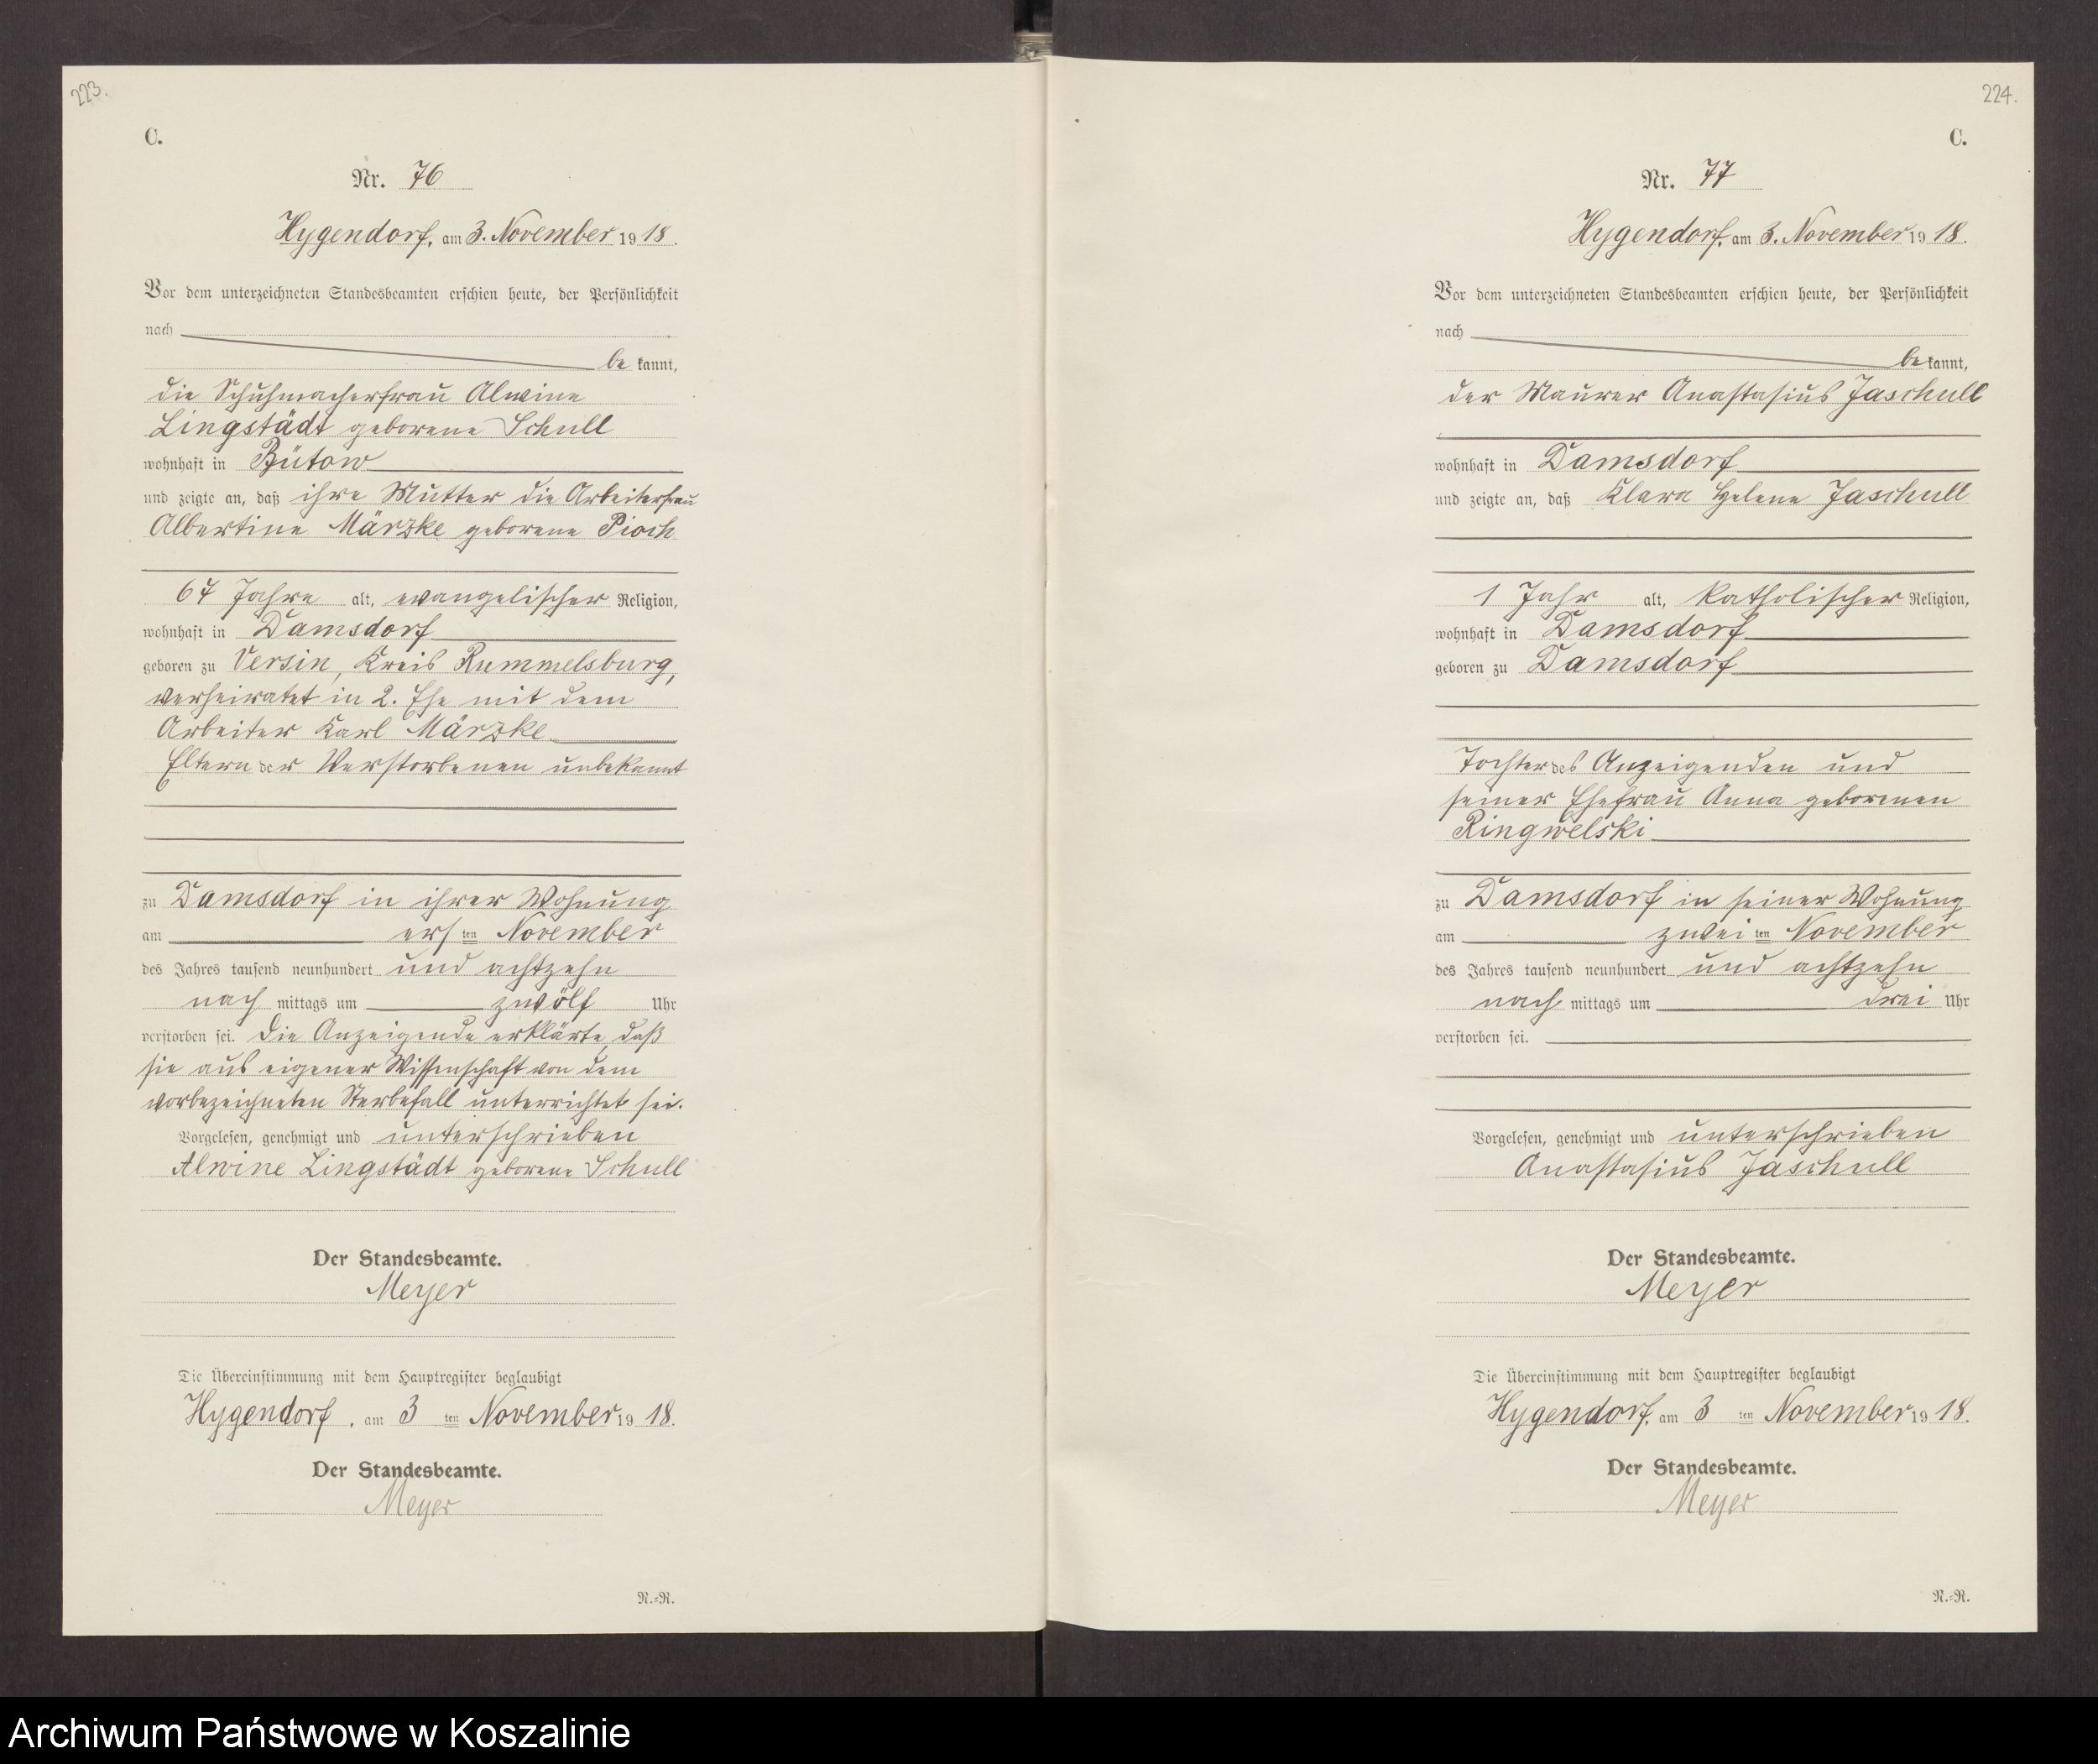 223.
C.
Nr. 76
Hygendorf, am 3. November 1918.
Vor dem unterzeichneten Standesbeamten erschien heute, der Persönlichkeit
nach
be kannt,
die Schuhmacherfrau Alwine
Lingstädt geborene Schull
wohnhaft in Bütow
und zeigte an, daß ihre Mutter die Arbeiterfrau
Albertine Märzke geborene Pioch
67 Jahre alt, evangelischer Religion,
wohnhaft in Damsdorf
geboren zu Versin, Kreis Rummelsburg,
verheiratet in 2. Ehe mit dem
Arbeiter Karl Märzke
Eltern der Verstorbenen unbekannt
zu Damsdorf in ihrer Wohnung
am ersten November
des Jahres tausend neunhundert und achtzehn
nach mittags um zwölf Uhr
verstorben sei. Die Anzeigende erklärte, daß
sie aus eigener Wissenschaft von dem
vorbezeichneten Sterbefall unterrichtet sei.
Vorgelesen, genehmigt und unterschrieben
Alwine Lingstädt geborene Schull
Der Standesbeamte.
Meyer
Die Übereinstimmung mit dem Hauptregister beglaubigt
Hygendorf, am 3 ten November 1918.
Der Standesbeamte.
Meyer
N.=R.
224.
C.
Nr. 77
Hygendorf, am 3. November 1918.
Vor dem unterzeichneten Standesbeamten erschien heute, der Persönlichkeit
nach
be kannt,
der Maurer Anastasius Jaschull
wohnhaft in Damsdorf
und zeigte an, daß Klara Helene Jaschull
1 Jahr alt, katholischer Religion,
wohnhaft in Damsdorf
geboren zu Damsdorf
Tochter des Anzeigenden und
seiner Ehefrau Anna geborenen
Ringwelski
zu Damsdorf in seiner Wohnung
am zwei ten November
des Jahres tausend neunhundert und achtzehn
nach mittags um drei Uhr
verstorben sei.
Vorgelesen, genehmigt und unterschrieben
Anastasius Jaschull
Der Standesbeamte.
Meyer
Die Übereinstimmung mit dem Hauptregister beglaubigt
Hygendorf, am 3 ten November 1918.
Der Standesbeamte.
Meyer
N.=R.
Archiwum Państwowe w Koszalinie